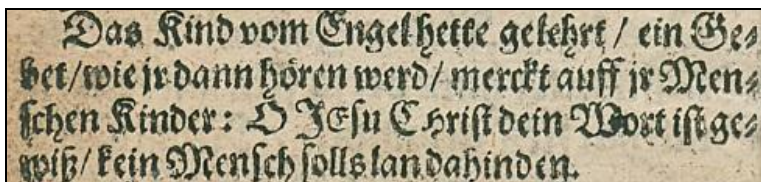 Das Kind vom Engel hette gelehrt / ein Ge-
bet / wie jr dann hören werd / merckt auff jr Men-
schen Kinder: O JEsu Christ dein Wort ist ge-
wiß / kein Mensch solls lan dahinden.